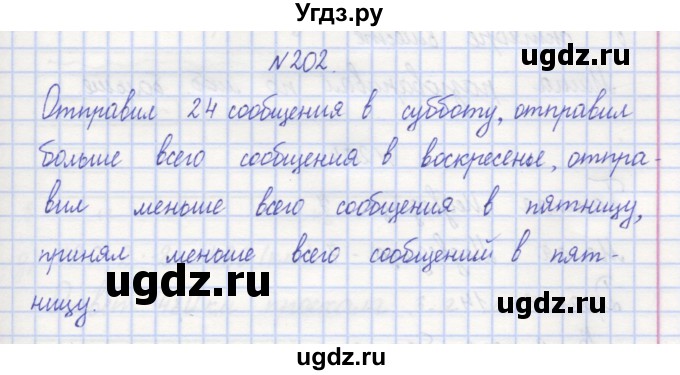 Угдз.ру
№202.
Отправил 24 сообщения в субботу, отправил
больше всего сообщения в воскресенье, отпра-
вил меньше всего сообщения в пятницу,
принял меньше всего сообщений в пят-
ницу.
ugdz.ru
ugdz.ru
ugdz.ru
ugdz.ru
ugdz.ru